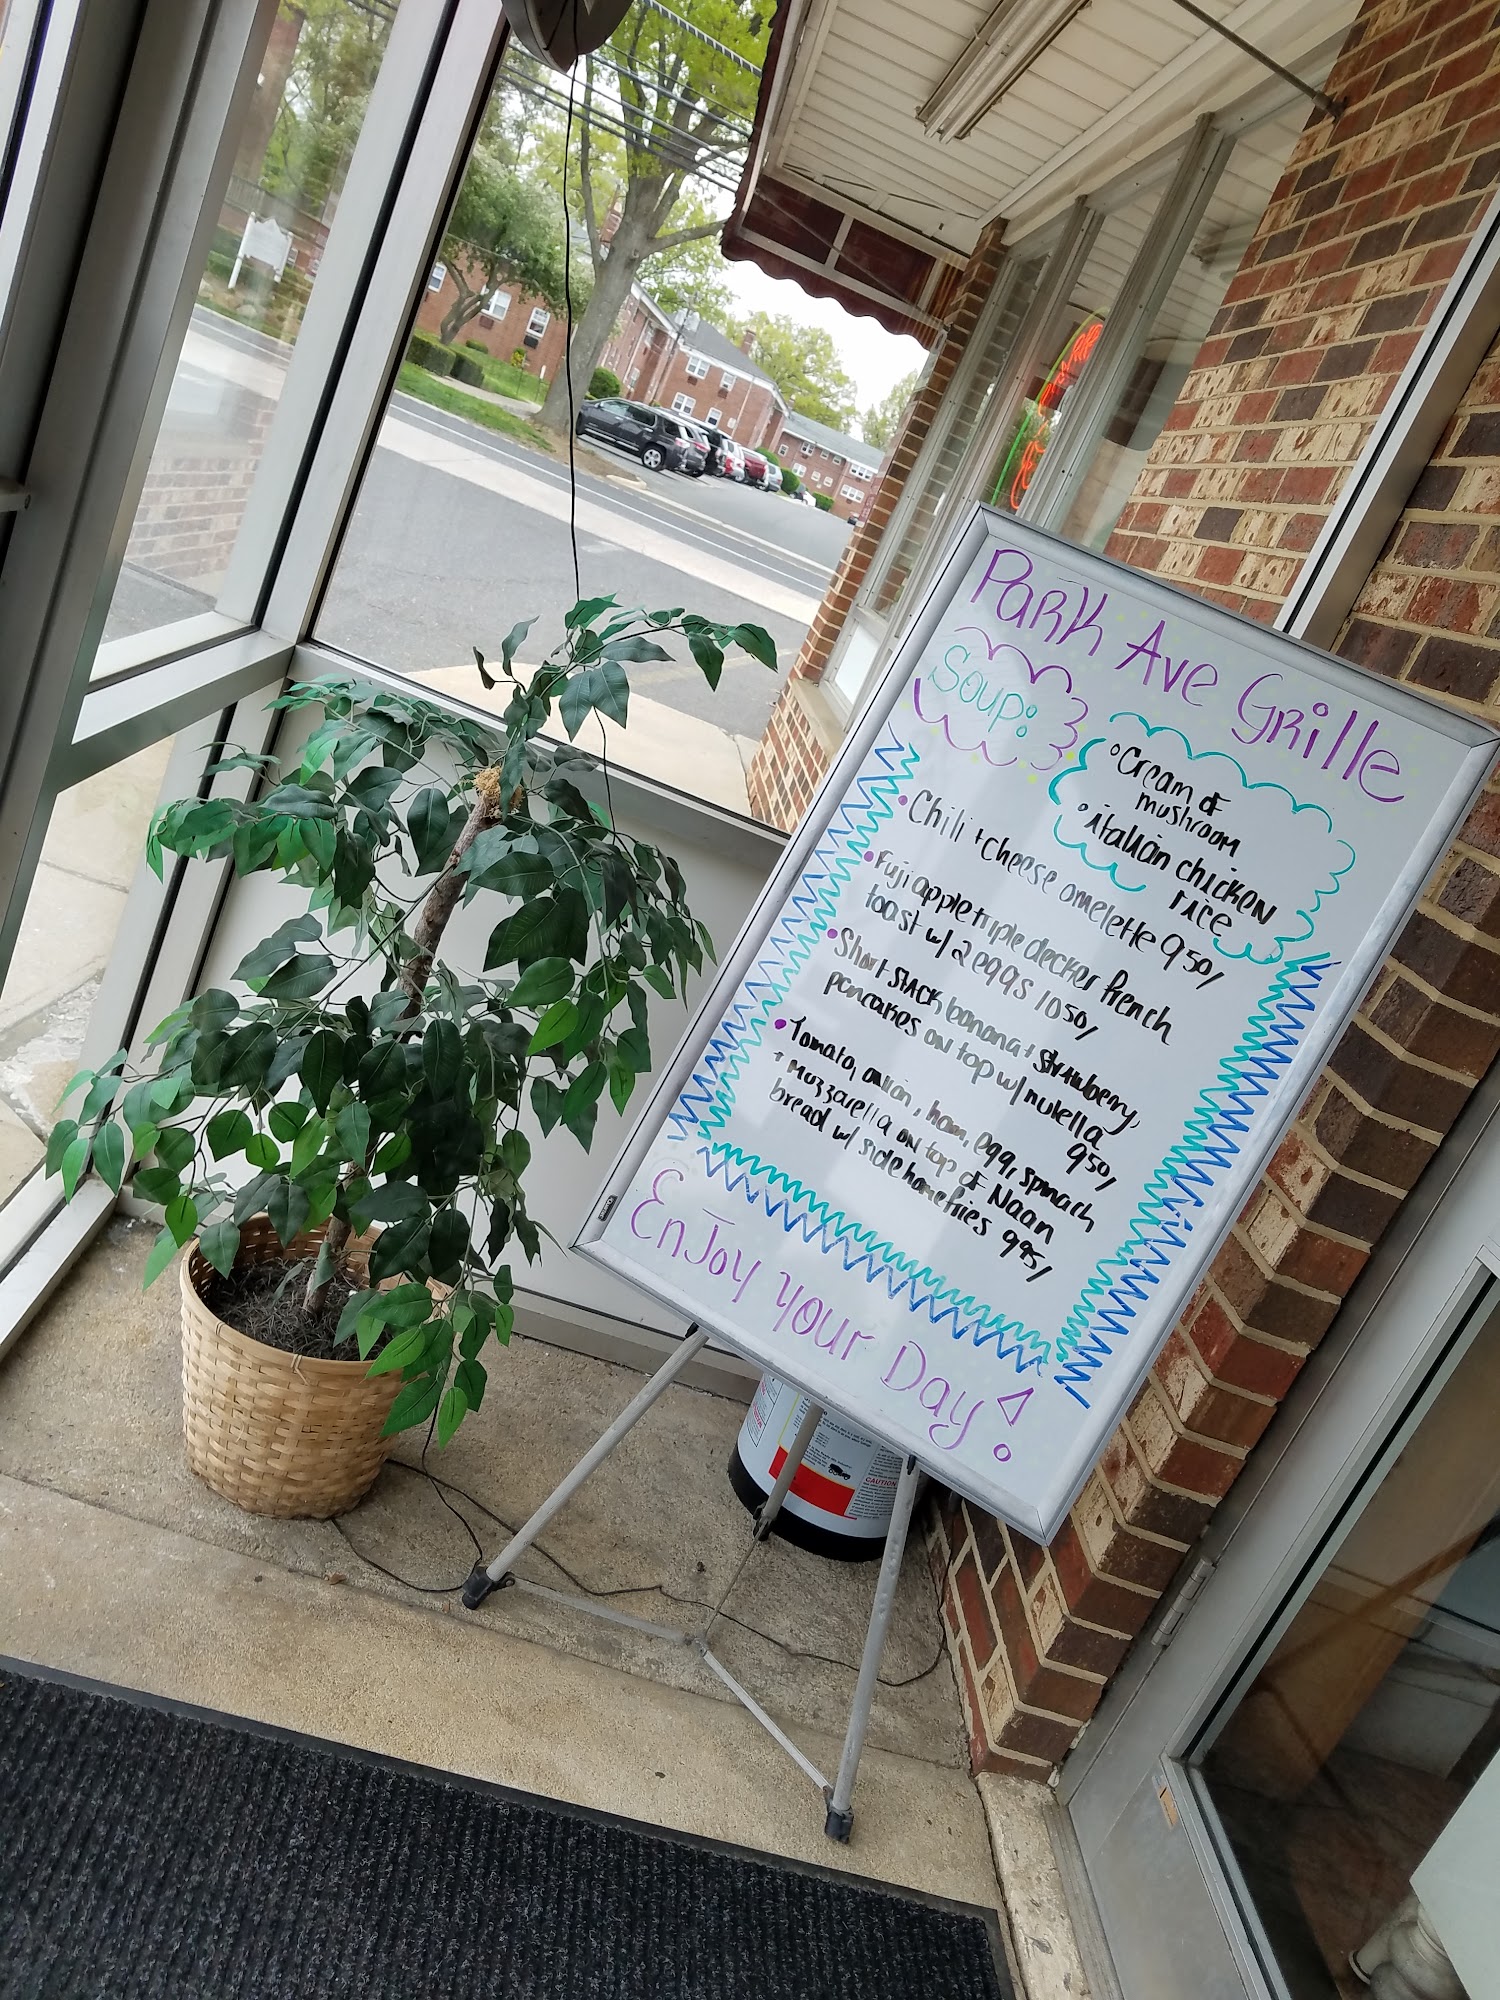 Park Ave Grille
Soup:
Cream of
mushroom
italian chicken
rice
Chili + Cheese omelette 9 50/
Fuji apple triple decker french
toast w/ 2 eggs 10 50/
Short STACK banana + Strawberry,
pancakes on top w/ nutella
9 50/
Tomato, onion, ham, egg, spinach
+ Mozzarella on top of Naan
bread w/ side home fries 9 95/
EnJoy your Day!
CAUTION